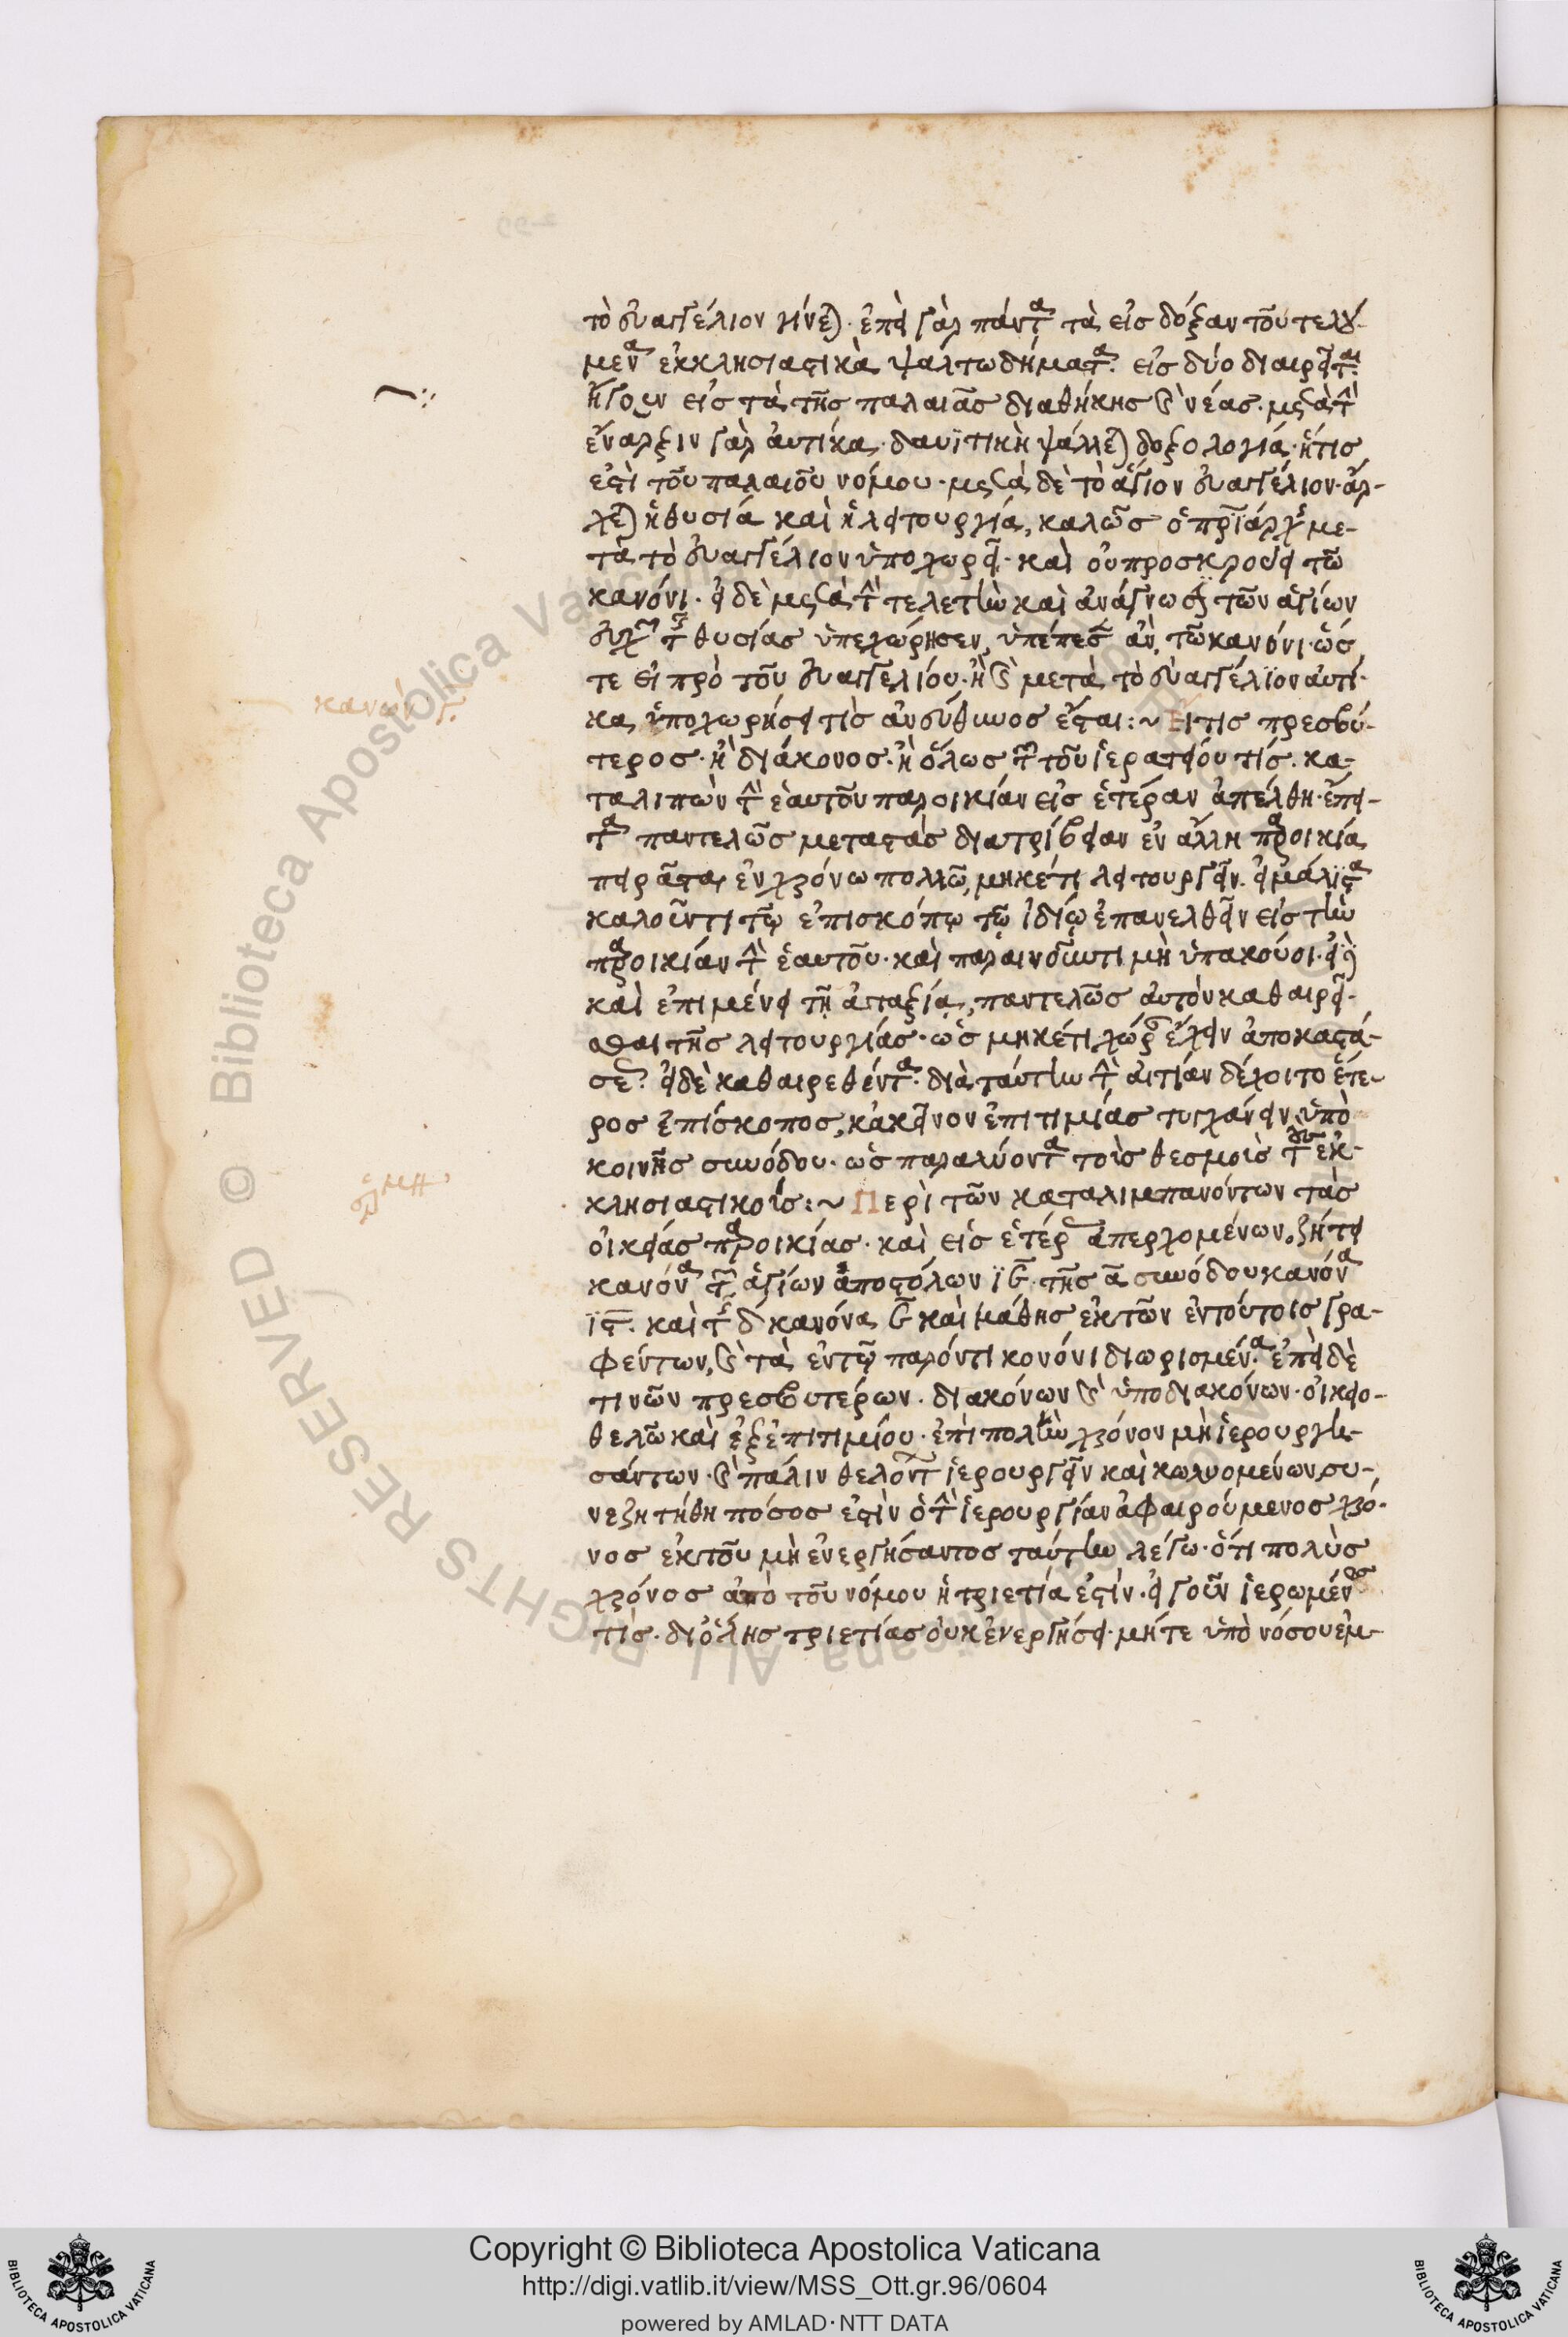 τὸ εὐαγγέλιον γίνεται· ἐπεὶ γὰρ πάντα τὰ εἰς δόξαν τοῦ τελού-
μενα ἐκκλησιαστικὰ ψαλτωδήματα· εἰς δύο διαιρεῖται·
ἤγουν εἰς τὰ τῆς παλαιᾶς διαθήκης καὶ νέας· μετὰ τὴν
ἔναρξιν γὰρ αὐτίκα· δαυϊτικὴ ψάλλεται δοξολογία· ἥτις
ἐστὶ τοῦ παλαιοῦ νόμου· μετὰ δὲ τὸ ἅγιον εὐαγγέλιον· ἄρ-
χεται ἡ θυσία καὶ ἡ λειτουργία, καλῶς ὁ πατριάρχης με-
τὰ τὸ εὐαγγέλιον ὑποχωρεῖ· καὶ οὐ προσκρούει τῶ
κανόνι· εἰ δὲ μετὰ τὴν τελετὴν καὶ ἀνάγνωσιν τῶν ἁγίων
εὐχῶν τῆς θυσίας ὑπεχώρησεν, ὑπέπεσεν ἂν, τῶ κανόνι· ὥσ
τε εἰ πρὸ τοῦ εὐαγγελίου· ἢ καὶ μετὰ τὸ εὐαγγέλϊον αὐτί-
κα ὑποχωρήσει τὶς ἀνεύθυνος ἔσται:~ Εἴ τις πρεσβύ-
τερος· ἢ διάκονος· ἢ ὅλως τῶν τοῦ ἱερατείου τίς. κα-
ταλιπὼν τὴν ἑαυτοῦ παροικίαν εἰς ἑτέραν ἀπέλθη· ἔπει-
τα παντελῶς μεταστὰς διατρίβειν ἐν ἄλλη παροικία
πειρᾶται ἐν χρόνω πολλῶ, μηκέτι λειτουργεῖν· εἰ μάλιστα
καλοῦντι τῷ ἐπισκόπῳ τῷ ἰδίῳ ἐπανελθεῖν εἰς τὴν
παροικίαν τὴν ἑαυτοῦ· καὶ παραινοῦντι μὴ ὑπακούοι· εἰ
καὶ ἐπιμένει τῇ ἀταξίᾳ, παντελῶς αὐτὸν καθαιρεῖ-
σθαι τῆς λειτουργίας· ὡς μηκέτι χώραν ἔχειν ἀποκαστά-
σεως· εἰ δὲ καθαιρεθέντα· διὰ ταύτην τὴν αἰτίαν δέχοιτο ἕτε-
ρος ἐπίσκοπος, κἀκεῖνον ἐπιτιμίας τυγχάνειν ὑπὸ
κοινῆς συνόδου· ὡς παραλύοντα τοὺς θεσμοὺς τοὺς ἐκ-
κλησιαστικούς:~ Περὶ τῶν καταλιμπανόντων τὰς
οἰκείας παροικίας· καὶ εἰς ἑτέραν ἀπερχομένων. ζήτει
κανόνα τῶν ἁγίων ἀποστόλων ϊε. τῆς α συνόδου κανόνα
ϊϛ. καὶ τὸν δ κανόνα καὶ μάθης ἐκ τῶν ἐν τούτοις γρα-
φέντων, καὶ τὰ ἐν τῷ παρόντι κονόνι διωρισμένα· ἐπεὶ δὲ
τινῶν πρεσβυτέρων· διακόνων καὶ ὑποδιακόνων· οἰκειο-
θελῶς καὶ ἐξ ἐπιτιμίου· ἐπὶ πολὺν χρόνον μὴ ἱερουργη-
σάντων· καὶ πάλιν θελόντων ἱερουργεῖν καὶ κωλυομένων, συ-
νεζητήθη πόσος ἐστὶν ὁ τὴν ἱερουργίαν ἀφαιρούμενος χρό-
νος ἐκ τοῦ μὴ ἐνεργήσαντος ταύτην λέγω· ὅτι πολὺς
χρόνος ἀπὸ τοῦ νόμου ἡ τριετία ἐστίν· εἰ γοῦν ἱερωμένος
τὶς· δι ὅλης τριετίας οὐκ ἐνεργήσει· μήτε ὑπὸ νόσου ἐμ-
κανών
Copyright © Biblioteca Apostolica Vaticana
http://digi.vatlib.it/view/MSS_Ott.gr.96/0604
powered by AMLAD·NTT DATA
BIBLIOTECA APOSTOLICA VATICANA
BIBLIOTECA APOSTOLICA VATICANA
© Biblioteca Apostolica Vaticana ALL RIGHTS RESERVED